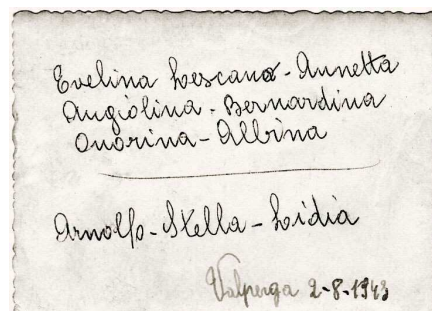 Evelina Lescano - Annetta
Angiolina - Bernardina
Onorina - Albina
Arnolfo - Stella - Lidia
Valperga 2-8-1943